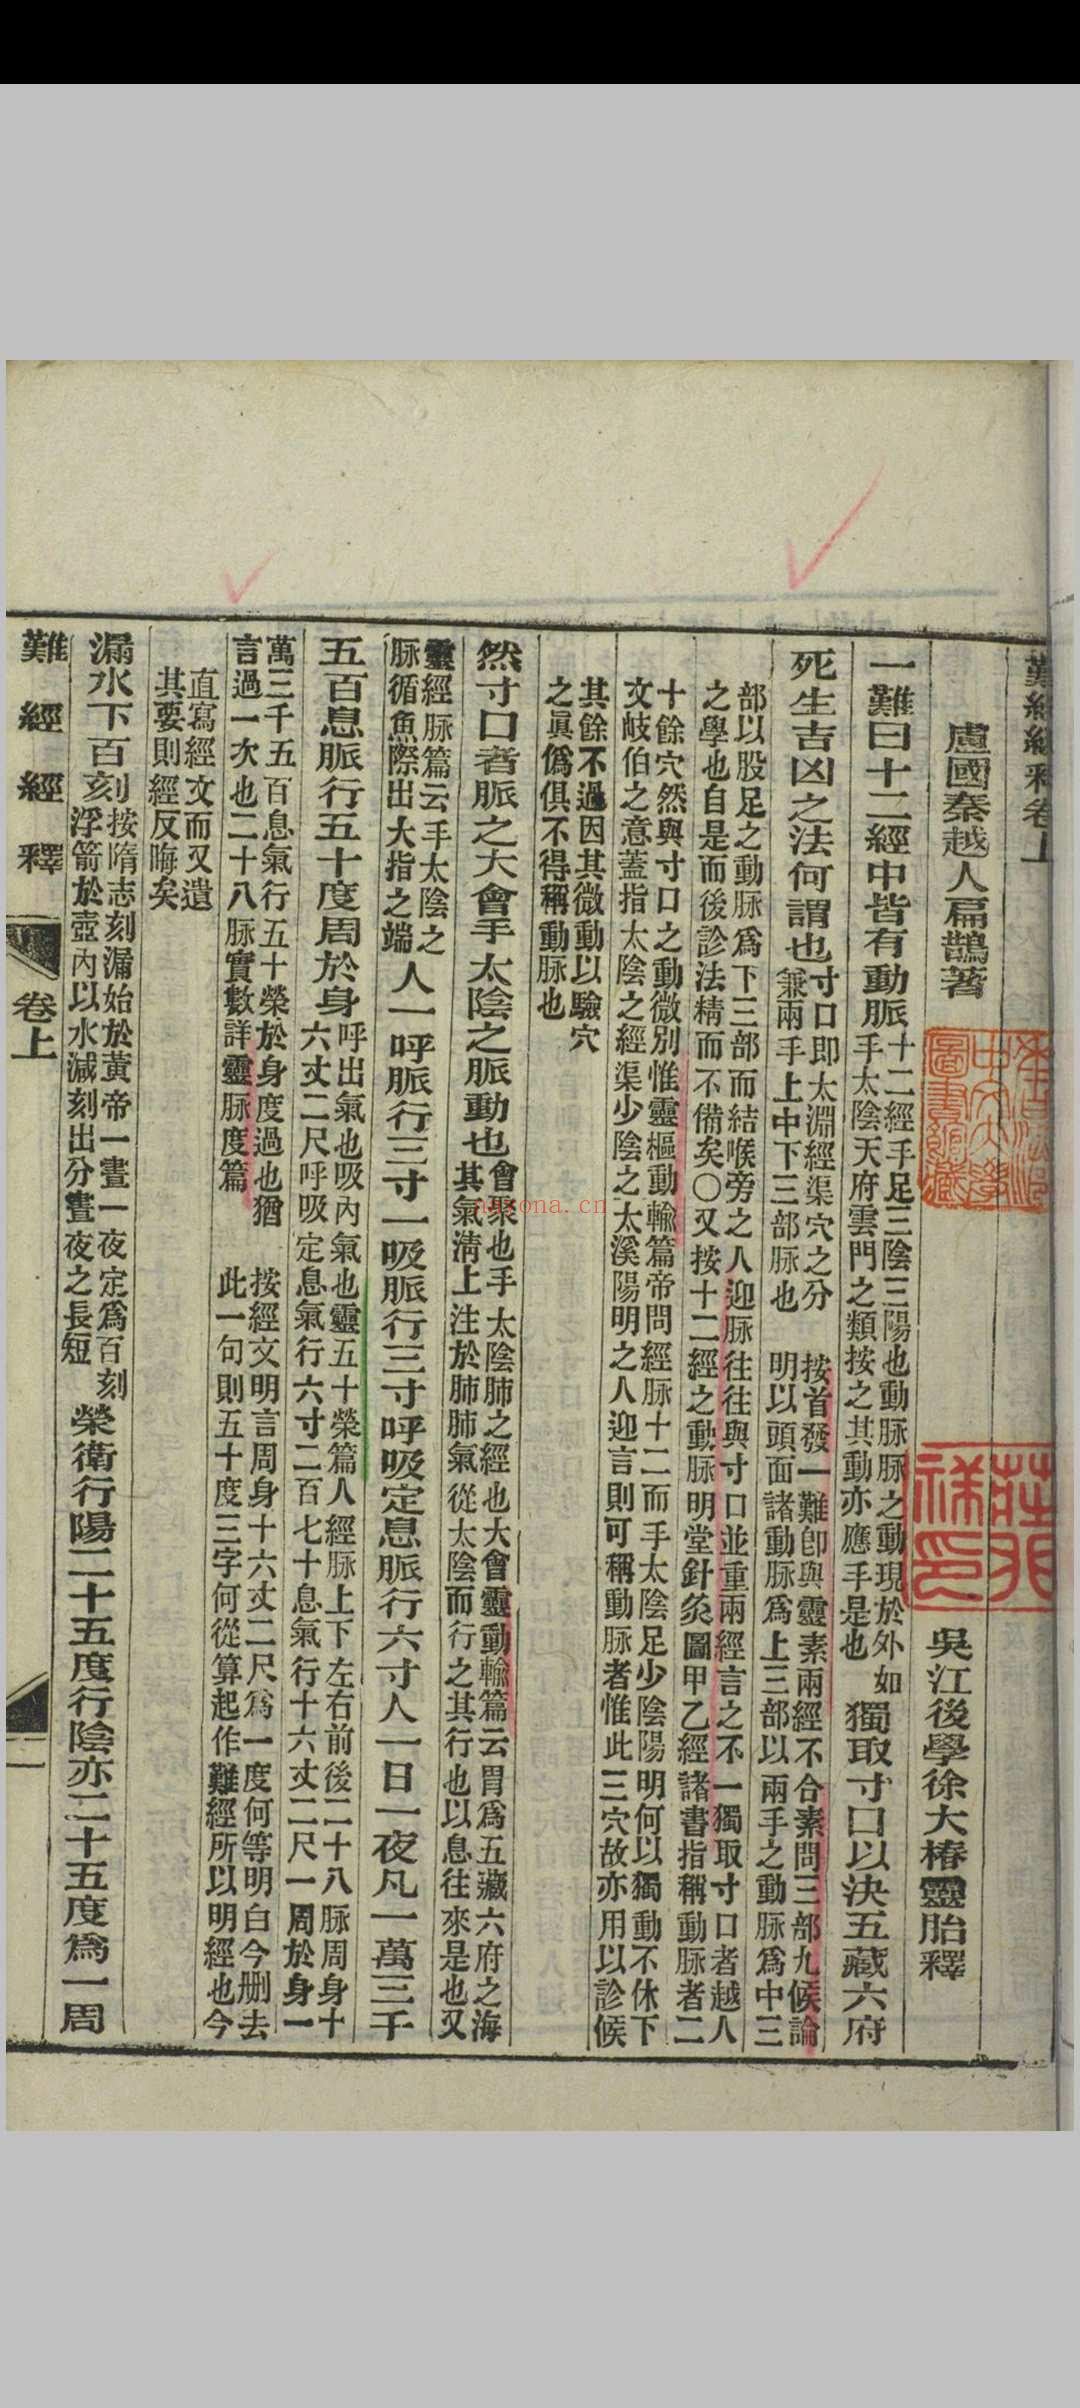 難經經釋卷上
盧國秦越人扁鵲著
吳江後學徐大椿靈胎釋
一難曰十二經中皆有動脈
十二經手足三陰三陽也動脈脈之動現於外如
手太陰天府雲門之類按之其動亦應手是也
獨取寸口以決五藏六府
死生吉凶之法何謂也
寸口即太淵經渠穴之分
兼兩手上中下三部脈也
按首發一難卽與靈素兩經不合素問三部九候論
明以頭面諸動脈爲上三部以兩手之動脈爲中三
部以股足之動脈爲下三部而結喉旁之人迎脈往往與寸口並重兩經言之不一獨取寸口者越人
之學也自是而後診法精而不備矣○又按十二經之動脈明堂針灸圖甲乙經諸書指稱動脈者二
十餘穴然與寸口之動微別惟靈樞動輸篇帝問經脈十二而手太陰足少陰陽明何以獨動不休下
文岐伯之意蓋指太陰之經渠少陰之太溪陽明之人迎言則可稱動脈者惟此三穴故亦用以診候
其餘不過因其微動以驗穴
之眞僞俱不得稱動脈也
然寸口者脈之大會手太陰之脈動也
會聚也手太陰肺之經也大會靈動輸篇云胃爲五藏六府之海
其氣淸上注於肺肺氣從太陰而行之其行也以息往來是也又
靈經脈篇云手太陰之
脈循魚際出大指之端
人一呼脈行三寸一吸脈行三寸呼吸定息脈行六寸人一日一夜凡一萬三千
五百息脈行五十度周於身
呼出氣也吸內氣也靈五十榮篇人經脈上下左右前後二十八脈周身十
六丈二尺呼吸定息氣行六寸二百七十息氣行十六丈二尺一周於身一
萬三千五百息氣行五十榮於身度過也猶
言過一次也二十八脈實數詳靈脈度篇
按經文明言周身十六丈二尺爲一度何等明白今刪去
此一句則五十度三字何從算起作難經所以明經也今
直寫經文而又遺
其要則經反晦矣
漏水下百刻
按隋志刻漏始於黃帝一晝一夜定爲百刻
浮箭於壺內以水減刻出分晝夜之長短
榮衛行陽二十五度行陰亦二十五度爲一周
難經經釋
卷上
一
nayona.cn